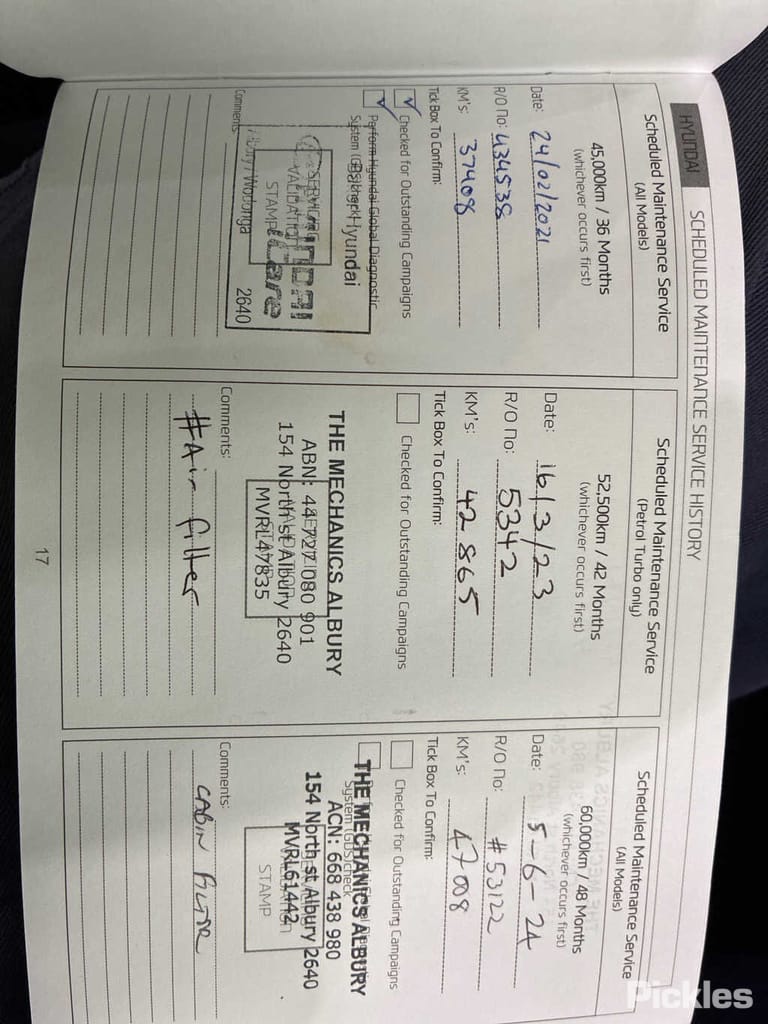 HYUNDAI
SCHEDULED MAINTENANCE SERVICE HISTORY
Scheduled Maintenance Service
(All Models)
45,000km / 36 Months
(whichever occurs first)
Date: 24/02/2021
R/O No: 434538
KM's: 37408
Tick Box To Confirm:
Checked for Outstanding Campaigns
Perform Hyundai Global Diagnostic
System (GDS) check
Hyundai
SERVICING
VALIDATION
STAMP
iCare
Albury / Wodonga 2640
Comments:
Scheduled Maintenance Service
(Petrol Turbo only)
52,500km / 42 Months
(whichever occurs first)
Date: 16/3/23
R/O No: 5342
KM's: 42865
Tick Box To Confirm:
Checked for Outstanding Campaigns
THE MECHANICS ALBURY
ABN: 44 727 080 901
154 North st Albury 2640
MVRL47835
Comments:
#Air filter
Scheduled Maintenance Service
(All Models)
60,000km / 48 Months
(whichever occurs first)
Date: 5-6-24
R/O No: #53122
KM's: 47008
Tick Box To Confirm:
Checked for Outstanding Campaigns
System (GDS) check
THE MECHANICS ALBURY
ACN: 668 438 980
154 North st Albury 2640
MVRL61442
STAMP
Comments:
CABIN FILTR
17
Pickles